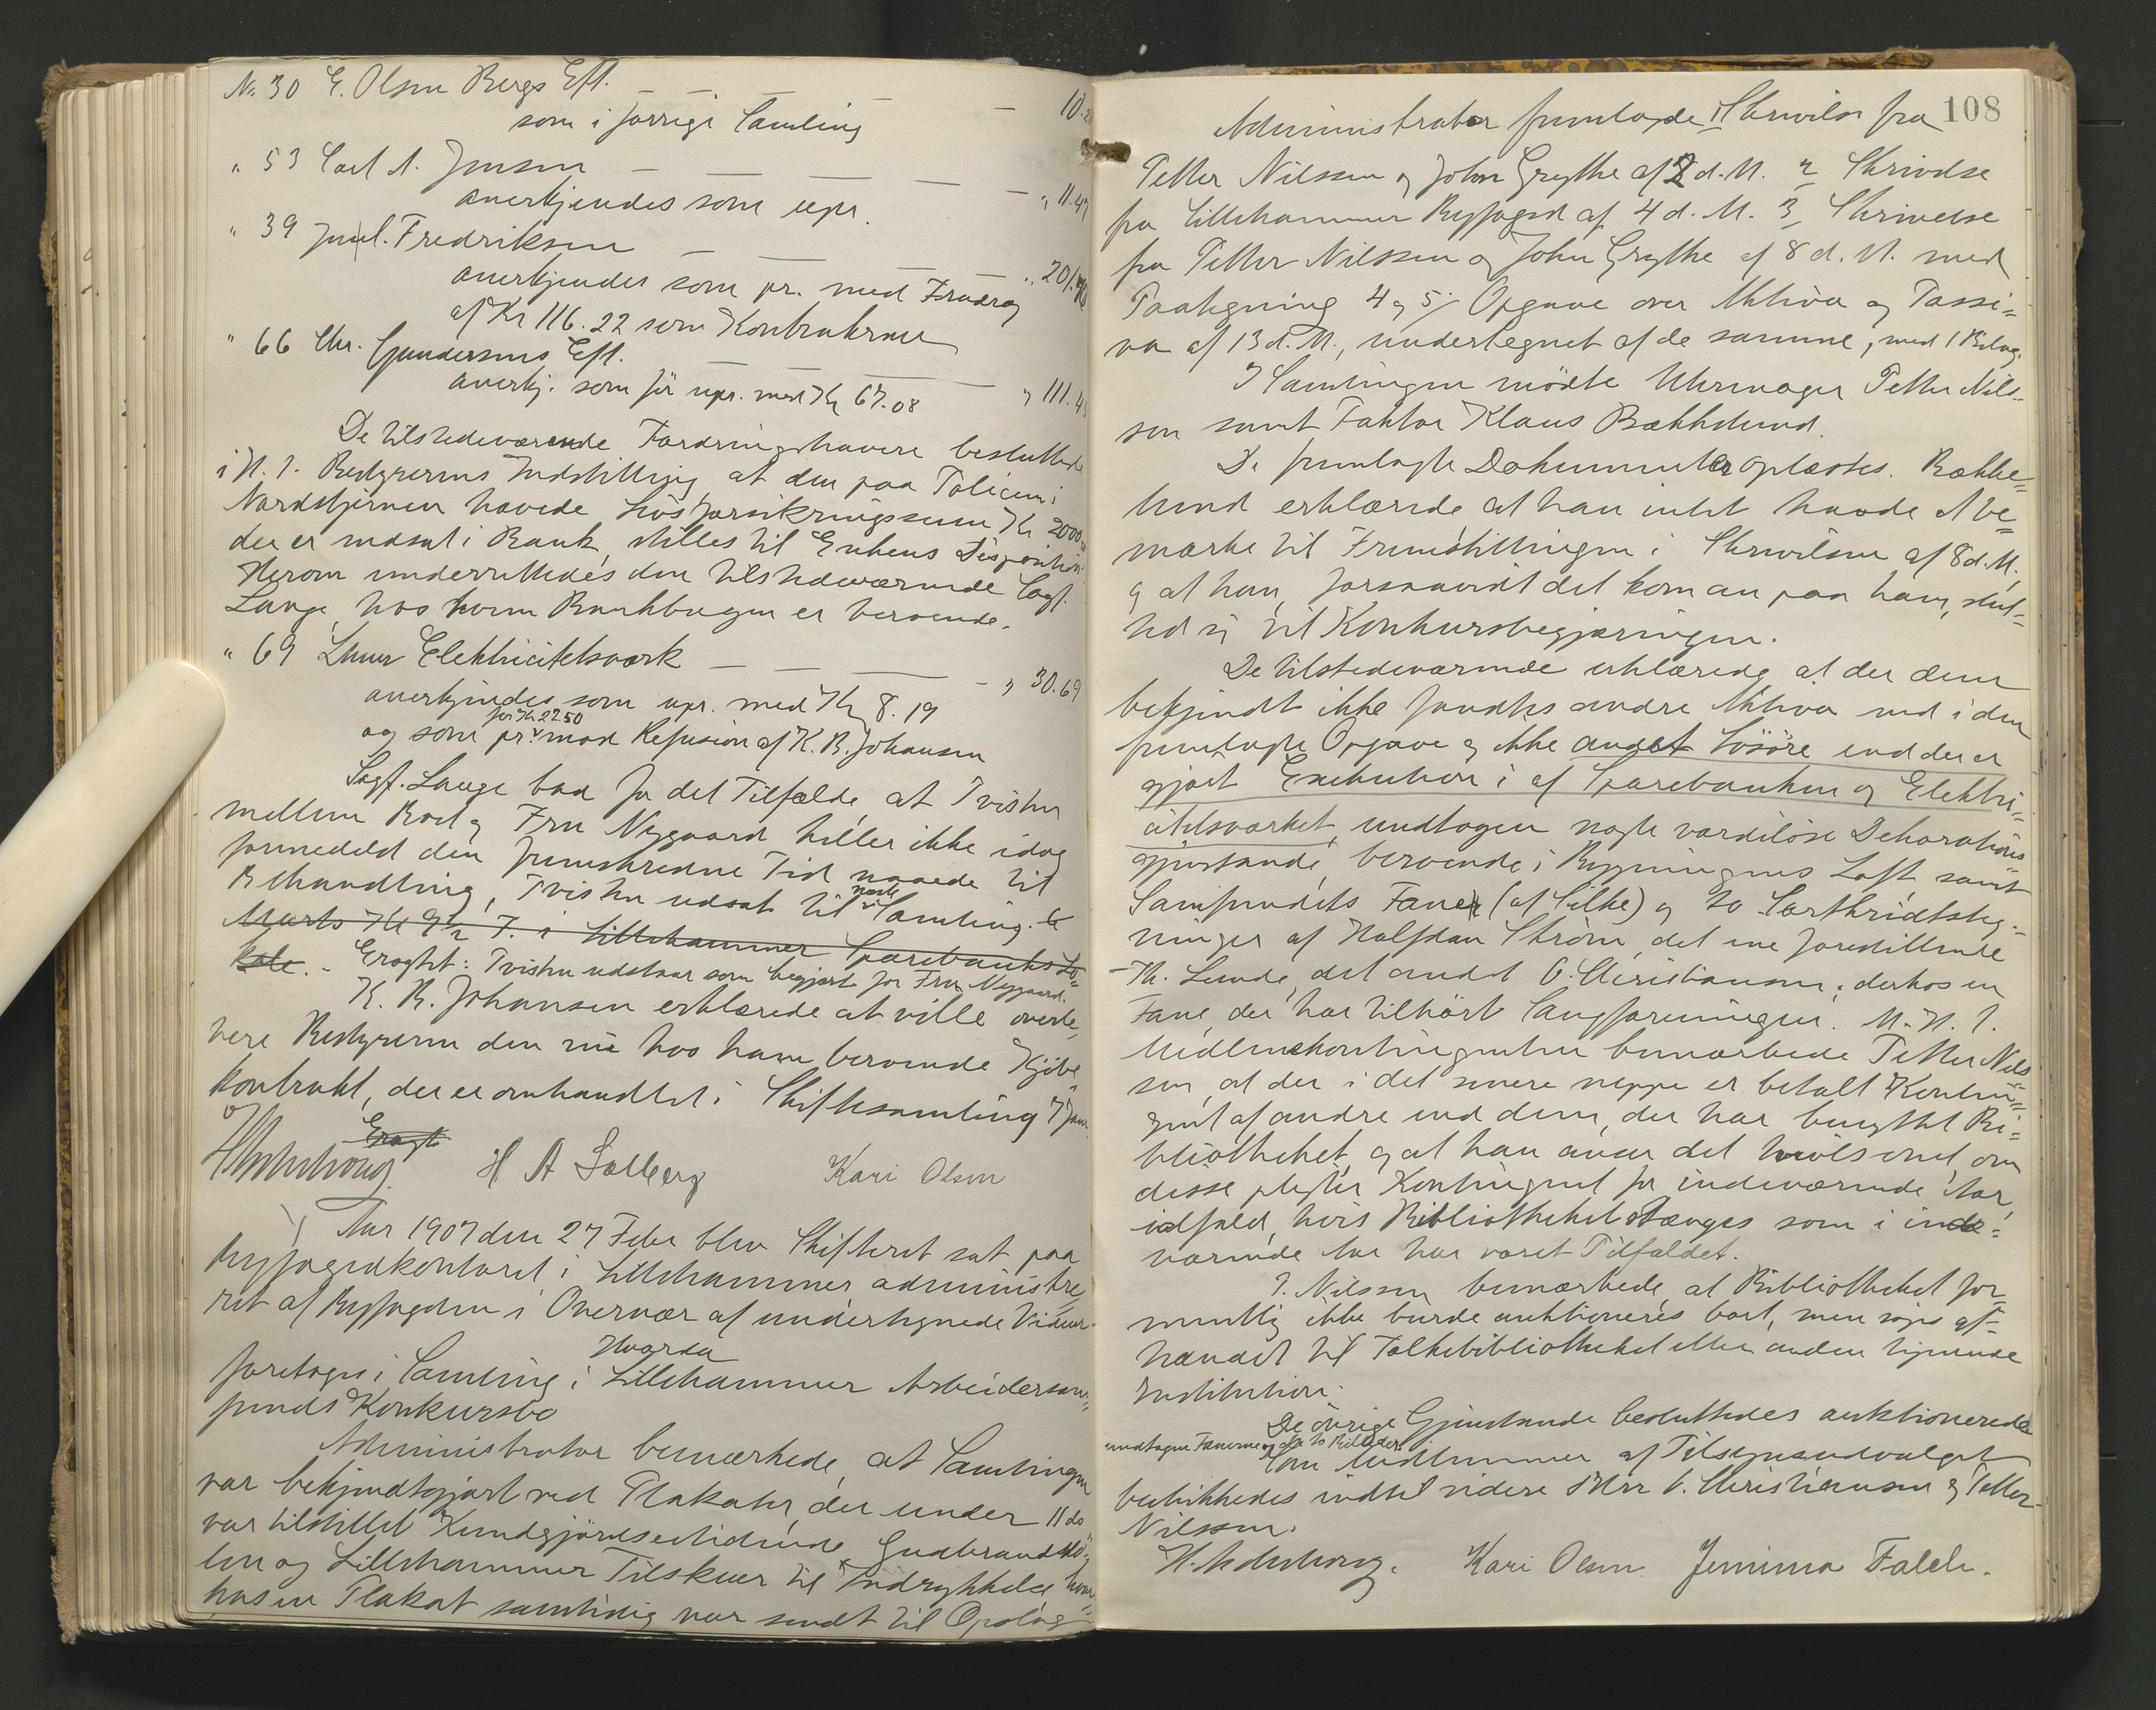 No 30 E. Olsen Bergs Eft. — — — — 10.
som i forrige Samling
" 53 Carl A. Jensen — — — — „ 11.47
anerkjendes som upr.
" 39 Juul. Fredriksen — — — „ 201.
anerkjendes som pr. med Fradrag
af Kr 116.22 som Kontrakrav
" 66 Chr. Gundersens Eft. — — „ 111.4
anerkj. som för upr. med Kr 67.08
De tilstedeværende Fordringshavere besluttede
i H. t. Bestyrerens Indstilling at den paa Policen i
Nordstjernen hævede Livsforsikringssum Kr 2000
der er indsat i Bank, stilles til Enkens Disposition
Herom underrettedes den tilstedeværende Sagf.
Lange, hos hvem Bankbogen er beroende.
" 69 Lunes Elektricitetsværk — — — „ 30.69
anerkjendes som upr. med Kr 8.19
for Kr 22.50
og som pr. mod Refusion af K. B. Johansen
Sagf. Lange bad for det Tilfælde at Tvisten
mellem Boet og Fru Nygaard heller ikke idag
formedelst den fremskredne Tid naaede til
Behandling, Tvisten udsat til næste Samling. 6
Marts Kl 9½ F. i Lillehammer Sparebanks Lo=
kale. - Eragtet: Tvisten udstaar som begjært for Fru Nygaard.
K. B. Johansen erklærede at ville overle=
vere Bestyreren den nu hos ham beroende Kjöbe=
kontrakt, der er omhandlet i Skiftesamling 7 Jan.
Eragt
H A Solberg Kari Olsen
Aar 1907 den 27 Febr blev Skifteret sat paa
byfogedkontoret i Lillehammer administre=
ret af Byfogden i Overvær af undertegnede Vidner.
Hvorda
foretoges i Samling i Lillehammer Arbeidersam=
funds Konkursbo
Administrator bemærkede, at Samlingen
var bekjendtgjort ved Plakater, der under 11 ds
var tilstillet Kundgjörelsestidende Gudbrandsdö=
len og Lillehammer Tilskuer til Indrykkelse, hvor=
hos en Plakat samtidig var sendt til Opslag
108
Administrator fremlagde 1) Skrivelse fra
Petter Nilssen og John Grythe af 2 d. M. 2) Skrivelse
fra Lillehammer Byfoged af 4 d. M. 3) Skrivelse
fra Petter Nilssen og John Grythe af 8 d. M. med
Paategning 4 og 5) Opgave over Aktiva og Passi=
va af 13 d. M., undertegnet af de samme, med 1 Bilag.
I Samlingen mödte Uhrmager Petter Nils=
sen samt Faktor Klaus Bækkelund.
De fremlagte Dokumenter oplæstes. Bække=
lund erklærede at han intet havde at be=
mærke til Fremstillingen i Skrivelsen af 8 d. M.,
og at han, forsaavidt det kom an paa ham, slut=
ted sig til Konkursbegjæringen.
De tilstedeværende erklærede, at der dem
bekjendt ikke fandtes andre Aktiva end i den
fremlagte Opgave og ikke andet Lösöre end der er
gjort Exekution i af Sparebanken og Elektri=
citetsværket, undtagen nogle værdilöse Dekorations
gjenstande, beroende i Bygningens Loft, samt
Samfundets Fane (af Silke) og to Sortkridtsteg=
ninger af Halfdan Ström, det ene forestillende
Th. Lunde, det andet O. Christiansen; derhos en
Fane, der har tilhört Sangforeningen. M. H. t.
Medlemskontingenten bemærkede Petter Nils=
sen, at der i det senere neppe er betalt Kontin=
gent af andre end dem, der har benyttet Bi=
bliotheket, og at han anser det tvivlsomt, om
disse plegter Kontingent for indeværende Aar,
ialfald, hvis Bibliotheket stænges som i inde=
værende Aar har været Tilfældet.
P. Nilssen bemærkede, at Bibliotheket for=
mentlig ikke burde auktioneres bort, men söges af=
hændet til Folkebibliotheket eller anden lignende
Institution.
De övrige Gjenstande besluttedes auktionerede
undtagen Fanerne og de to Billeder.
Som Medlemmer af Tilsynsudvalget
beskikkedes indtil videre Hrr O. Christiansen og Petter
Nilssen.
Kari Olsen. Jemima Falch.